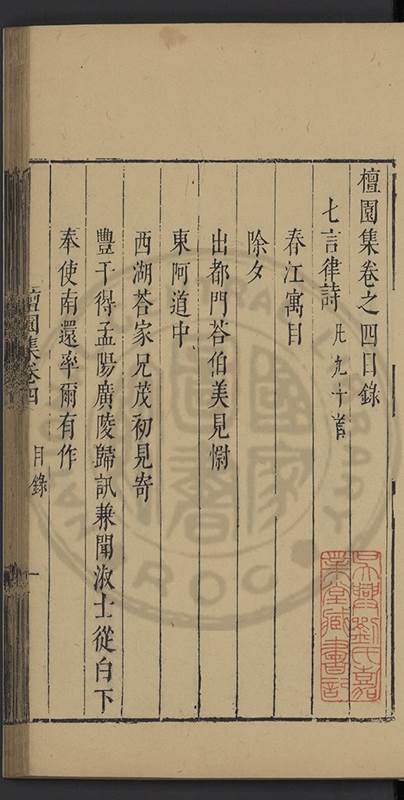 檀園集卷之四目錄
七言律詩 凡九十首
春江寓目
除夕
出都門荅伯美見慰
東阿道中
西湖荅家兄茂初見寄
豐干得孟陽廣陵歸訊兼聞淑士從白下
奉使南還率爾有作
檀園集卷四 目錄 一
吳興劉氏嘉
業堂藏書記